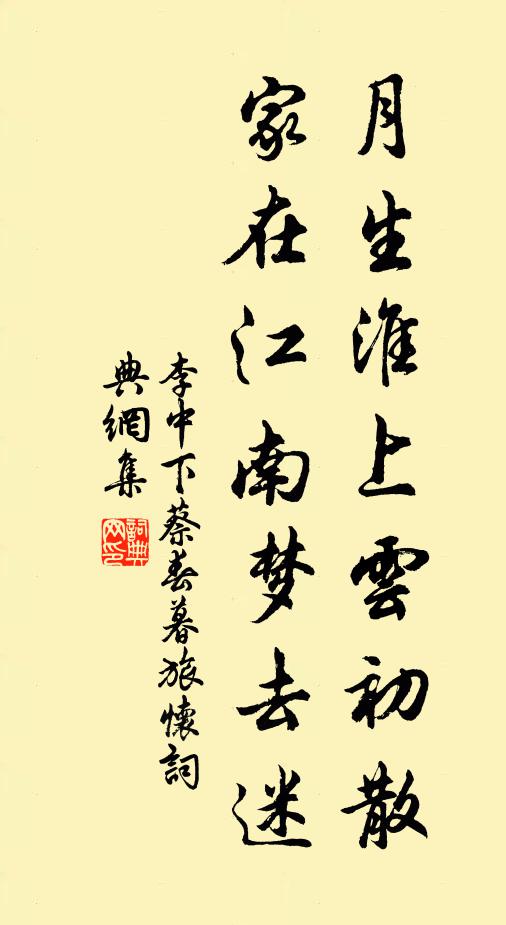 月生淮上雲初散
家在江南梦去迷
李中下蔡春暮旅懷詞
典網集
詞典
网印